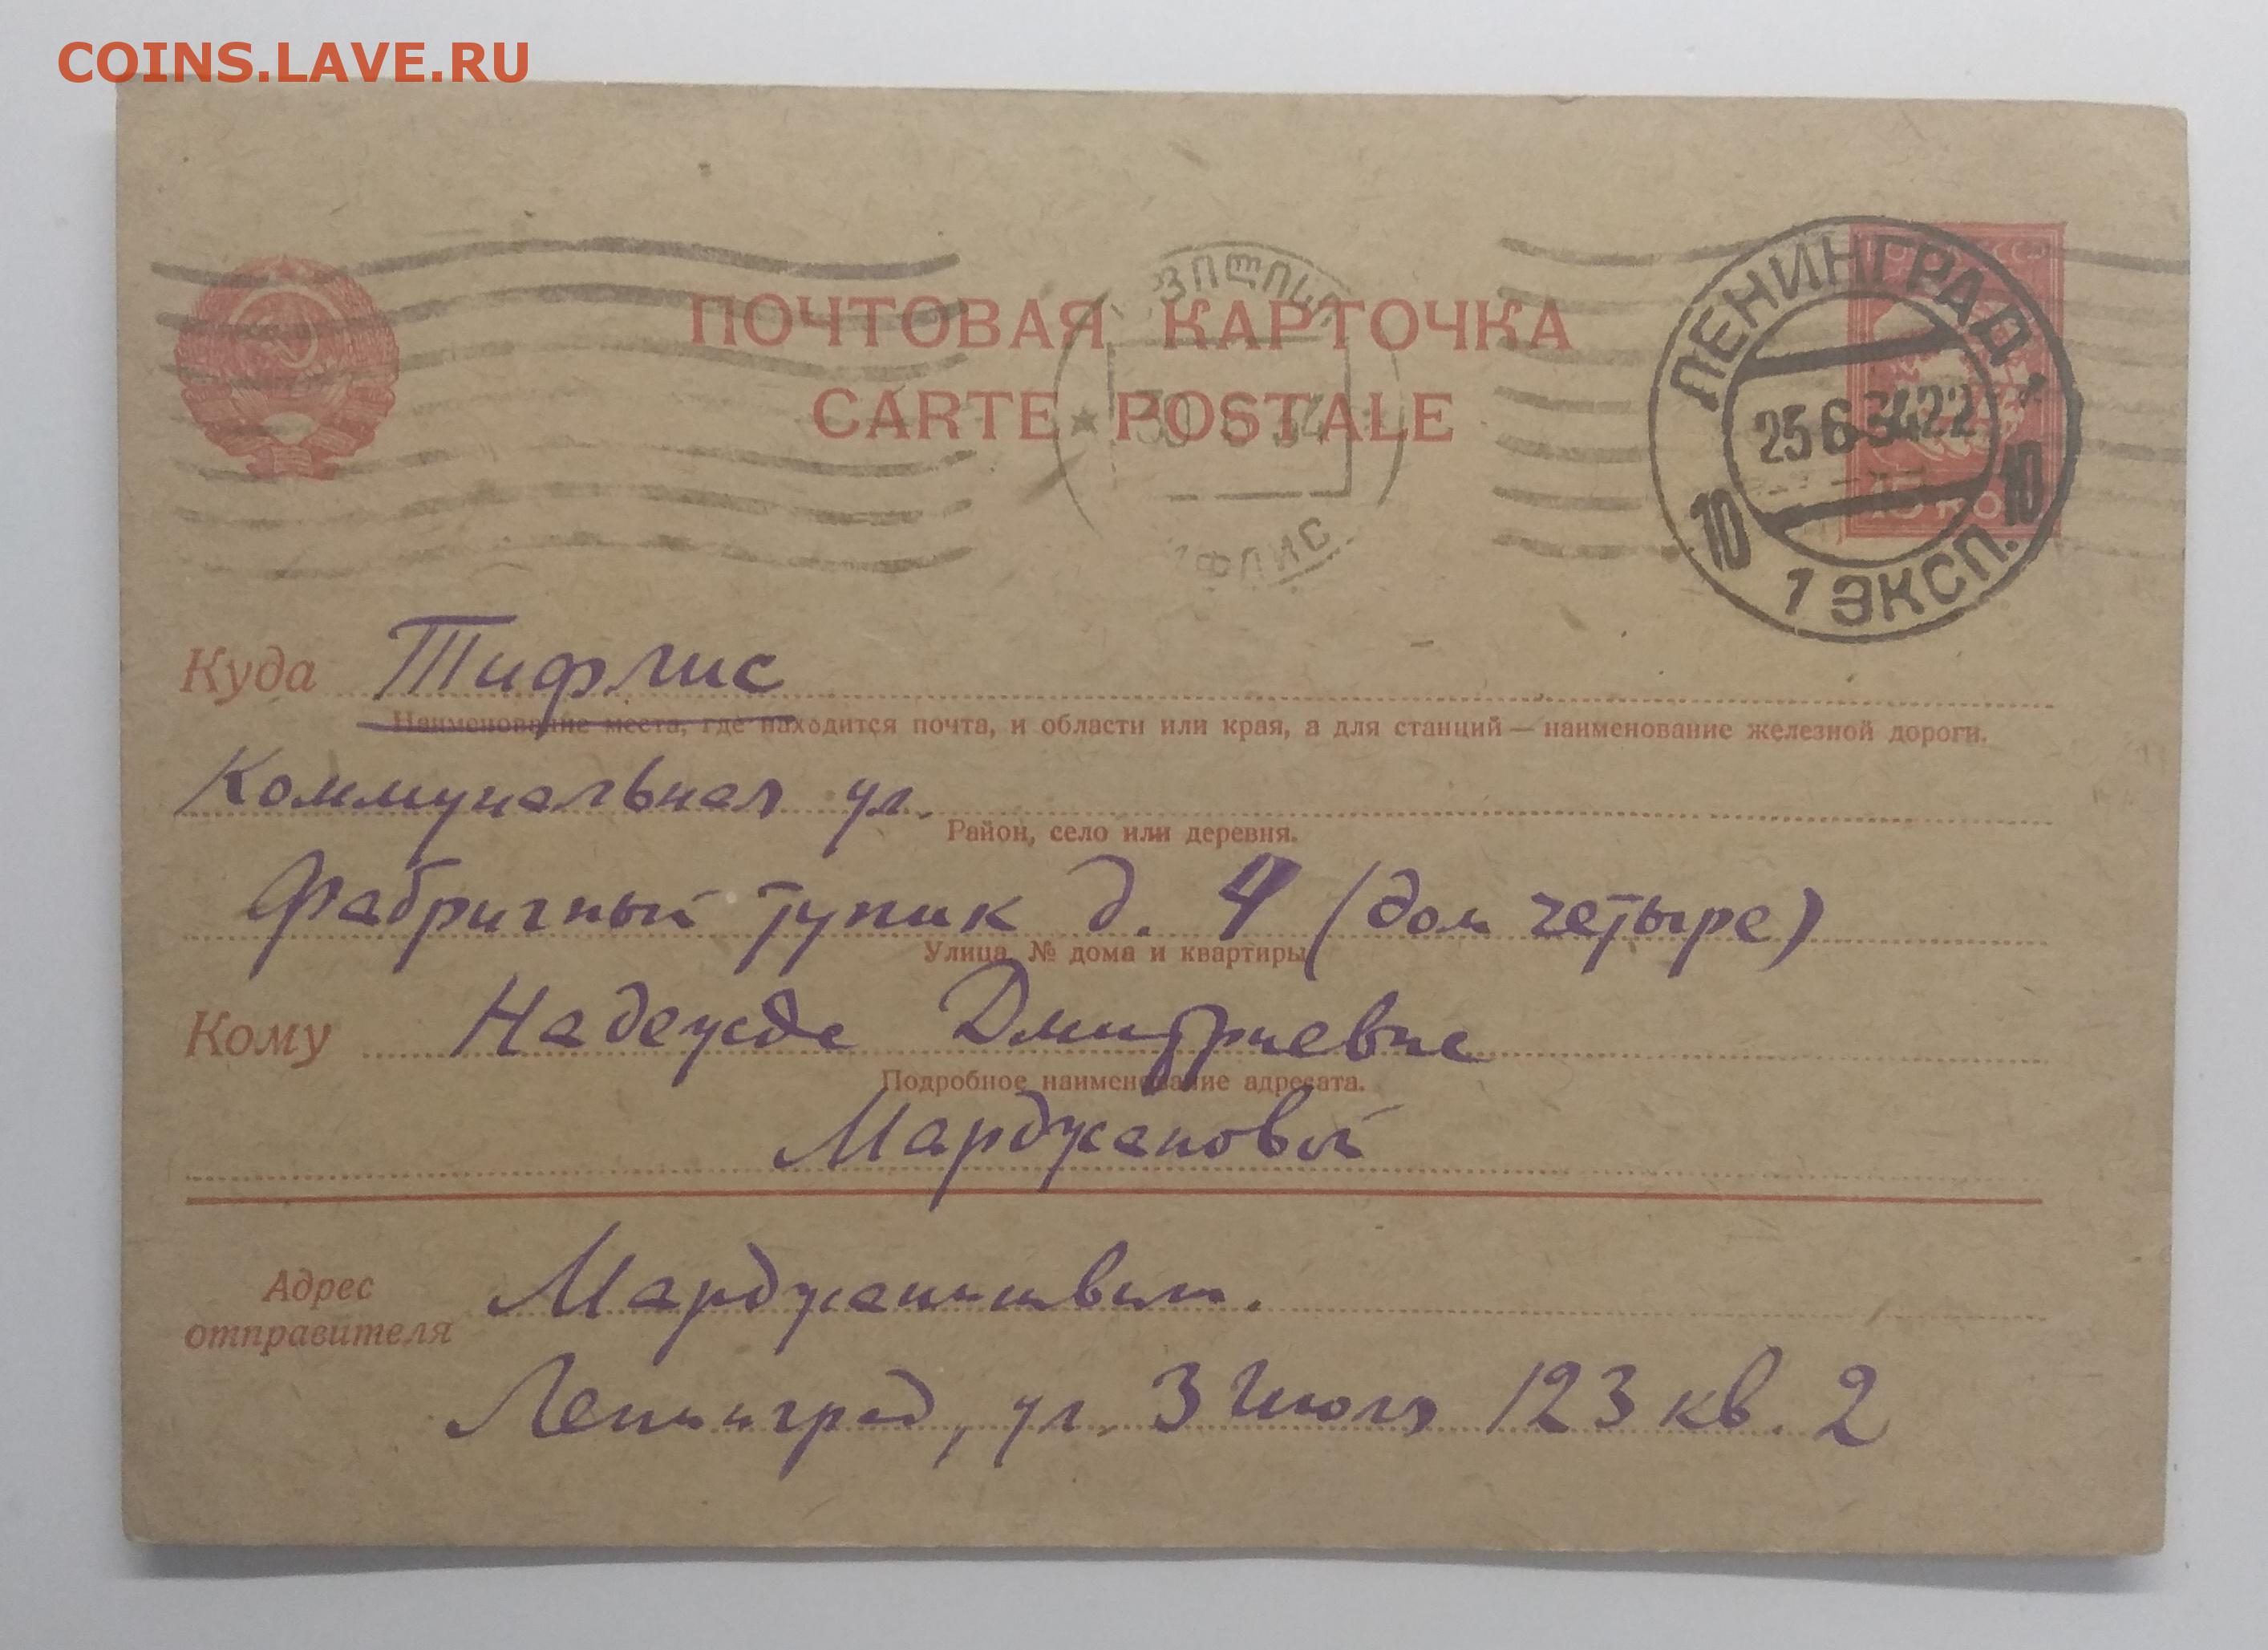 COINS.LAVE.RU
ПОЧТОВАЯ КАРТОЧКА
CARTE POSTALE
ЛЕНИНГРАД
25 6 34 22
10 10
1 ЭКСП.
15 КО
ФЛИС
Куда Тифлис
Наименование места, где находится почта, и области или края, а для станций — наименование железной дороги.
Коммунальная ул.
Район, село или деревня.
Фабричный тупик д. 4 (дом четыре)
Улица, № дома и квартиры
Кому Надежде Дмитриевне
Подробное наименование адресата.
Марджановой
Адрес отправителя Марджанишвили.
Ленинград, ул. 3 Июля 123 кв. 2